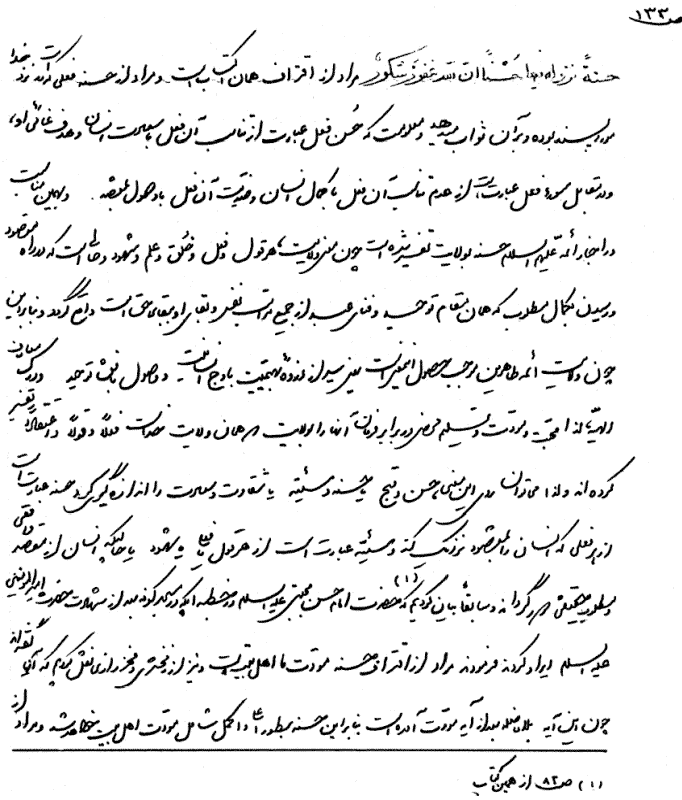 ص ۱۳۳
حسنةً نزد له فیها حُسْناً ان الله غفور شکور مراد از اقتراف همان اکتساب است و مراد از حسنه فعلی که نزد خدا
مورد پسند بوده و بر آن ثواب میدهد و معلومست که حُسن فعل عبارت از تناسب آن فعل با سعادت انسان و هدف غائی او است
و در مقابل سوء فعل عبارت است از عدم تناسب آن فعل با کمال انسان و ضدیت آن فعل با وصول بمقصد و بهمین مناسبت
در اخبار ائمه علیهم السلام حسنه بولایت تفسیر شده است چون معنی ولایت هر قول و فعل و خُلق و علم و شهود و حالی است که در راه مقصود
و رسیدن بکمال مطلوب که همان مقام توحید و فنای عبد از جمیع مراتب نفس و بقای او ببقاء حق است واقع گردد و بنابراین
چون ولایت ائمه طاهرین موجب حصول این معنی است یعنی سیر از بهیمیت باوج انسانیت و وصول توحید و درک معارف
الهیّه لذا محبّت و مودّت و تسلیم در برابر فرمان آنها را بولایت که همان ولایت خداست فعلاً و قولاً و اعتقاداً تفسیر
کرده اند و لذا میتوان روی این معنی حسن و قبح یا حسنه و سیّئه یا شقاوت و سعادت را اندازه گیری کرد حسنه عبارت است
از هر فعلی که انسان را بمقصود نزدیک کند و سیّئه عبارت است از هر قول یا فعل یا شهود یا حالیکه انسان از مقصد واقعی
و مطلوب حقیقی دور گرداند و سابقاً بیان کردیم که حضرت امام حسن مجتبی علیه السلام در خطبه ایکه در مسجد کوفه بعد از شهادت حضرت امیرالمؤمنین (۱)
علیه السلام ایراد کردند فرمودند مراد از اقتراف حسنه مودّت ما اهل بیت است و نیز از زمخشری و فخر رازی نقل کردیم که آنها گفته اند
چون این آیه بلافاصله بعد از آیه مودّت آمده است بنابراین حسنه بطور اعلا و اکمل شامل مودّت اهل بیت خواهد شد و مراد از
(۱) ص ۸۲ از همین کتاب